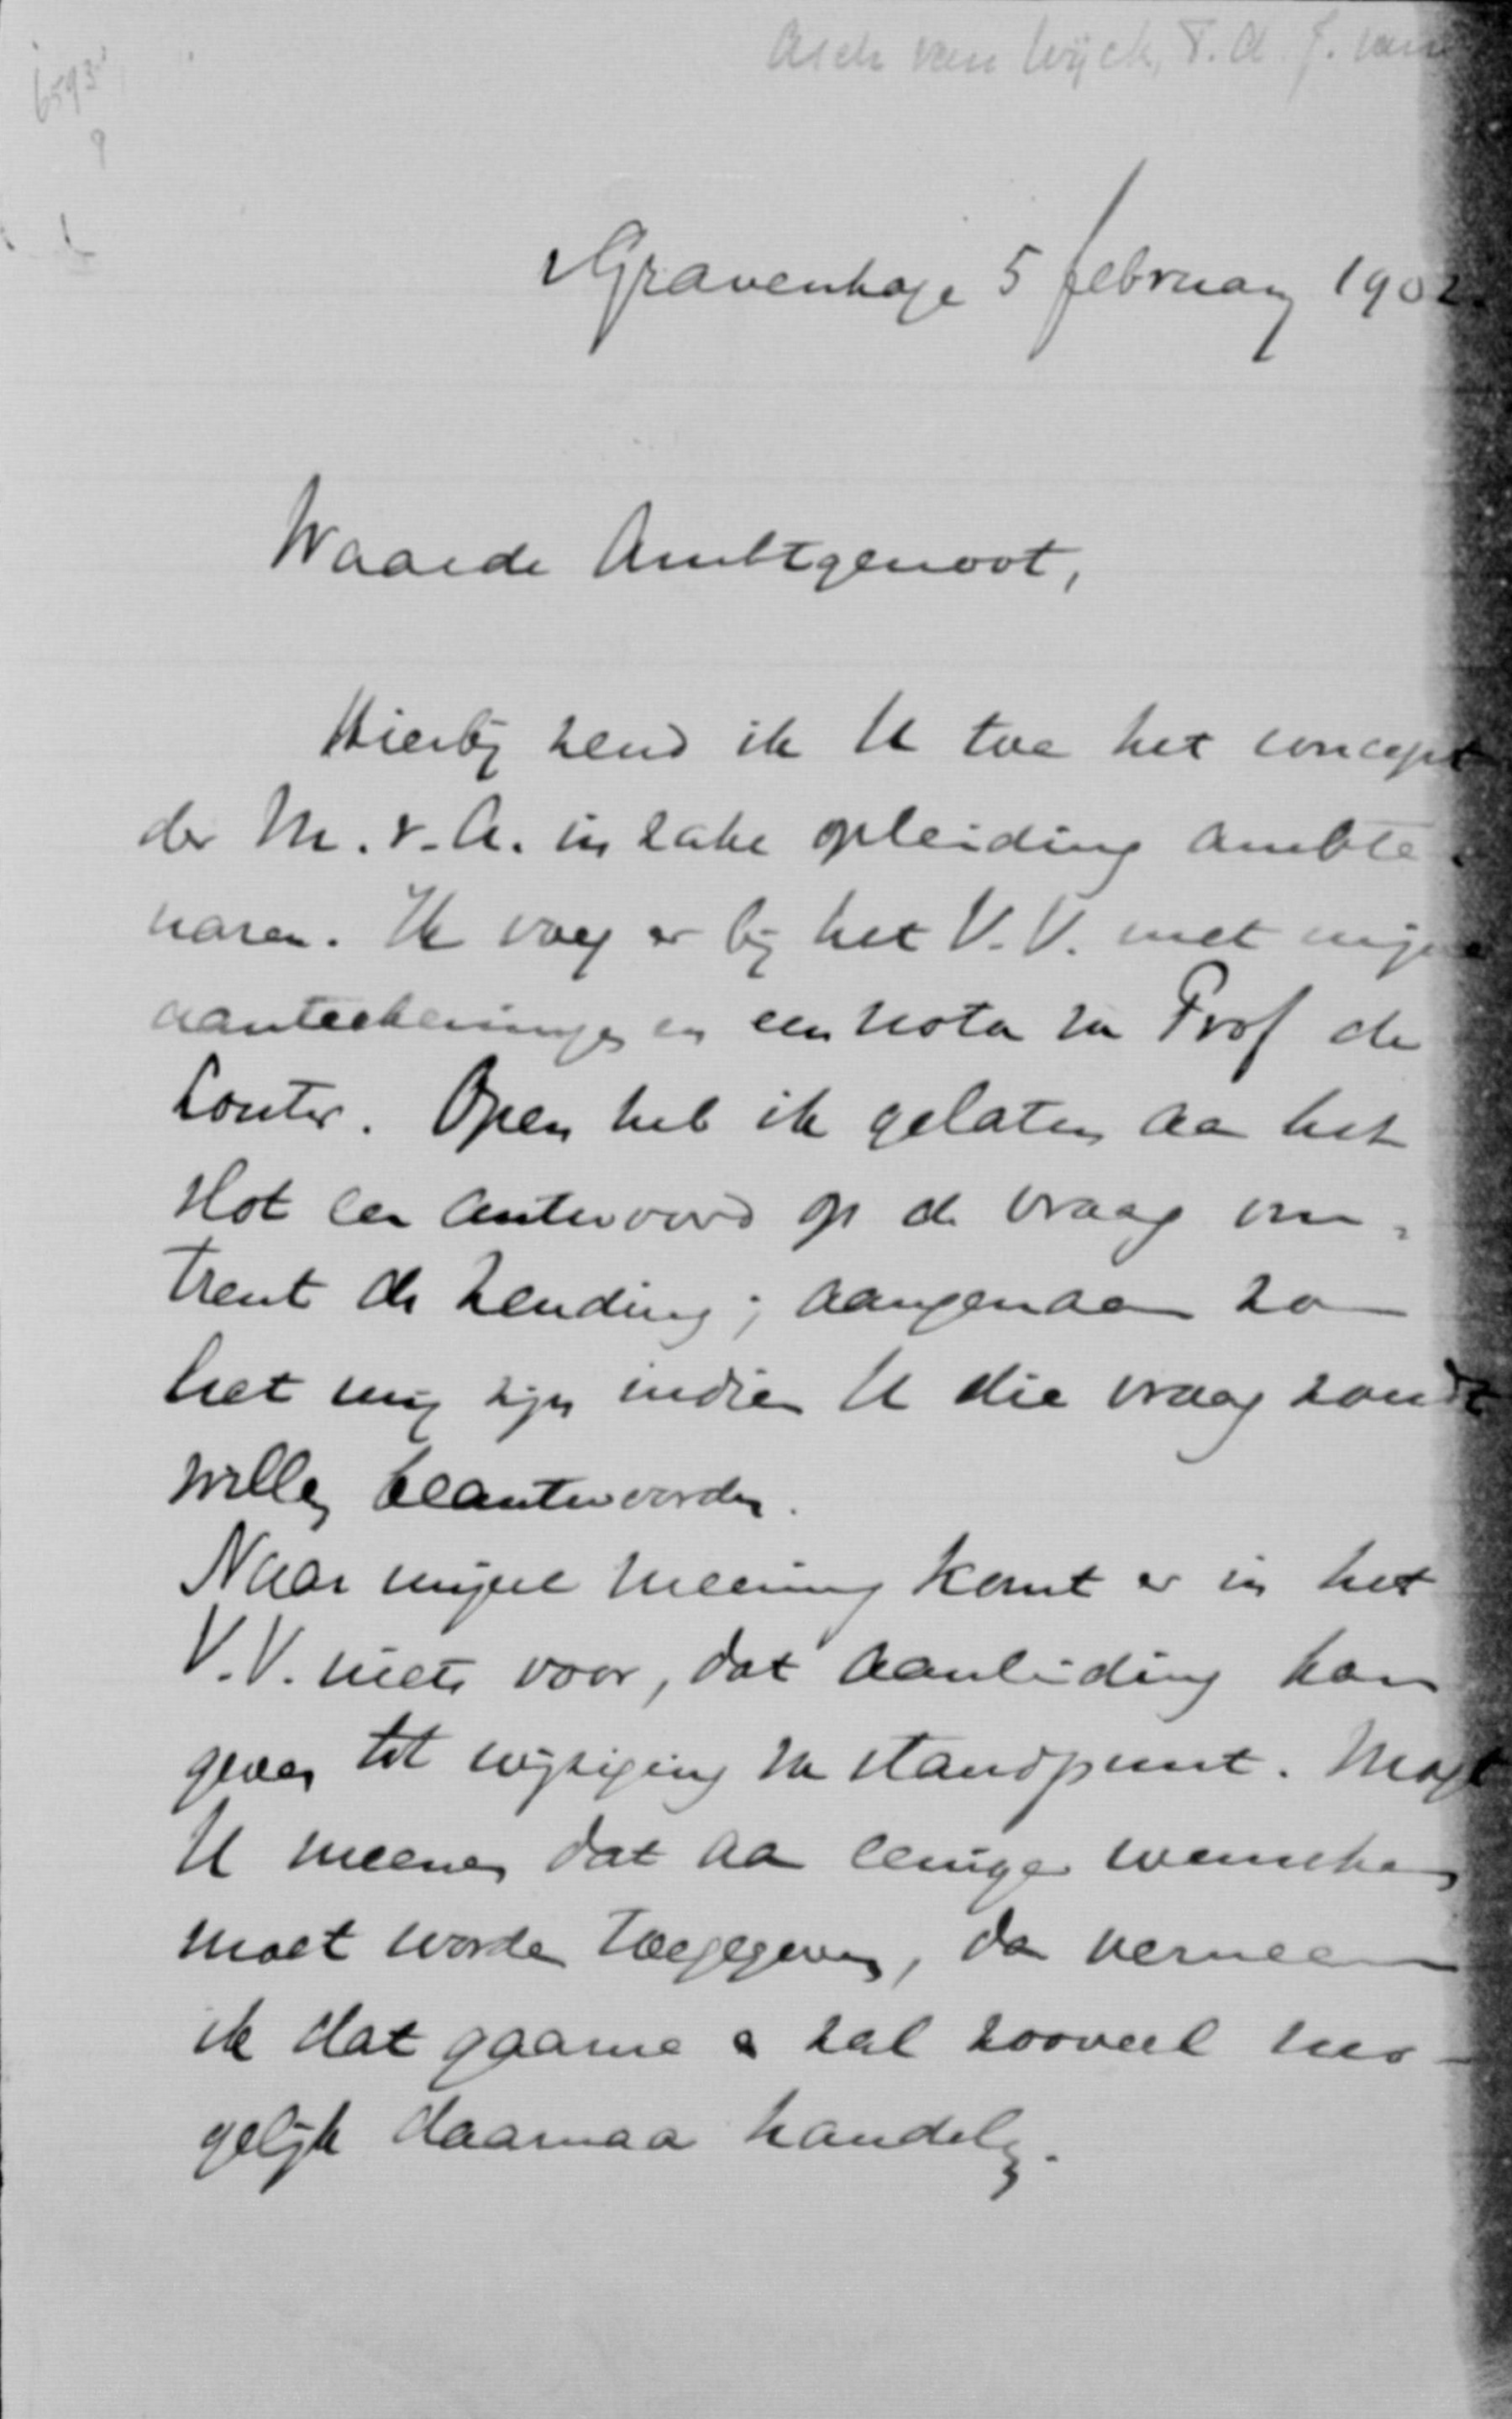 Asch van Wijck, T. A. J. van
6593
9
's Gravenhage 5 februari 1902.
Waarde Ambtgenoot,
Hierbij zend ik U toe het concept
der M. v. A. in zake opleiding ambte-
naren. Ik voeg er bij het V. V. met mijne
aanteekeningen en een nota van Prof de
Louter. Open heb ik gelaten aan het
slot een antwoord op de vraag om-
trent de zending; aangenaam zou
het mij zijn indien U die vraag zoudt
willen beantwoorden.
Naar mijne meening komt er in het
V. V. niets voor, dat aanleiding kan
geven tot wijziging van standpunt. Mogt
U meenen dat aan eenige wenschen
moet worden toegegeven, dan verneem
ik dat gaarne & zal zooveel mo-
gelijk daarnaar handelen.